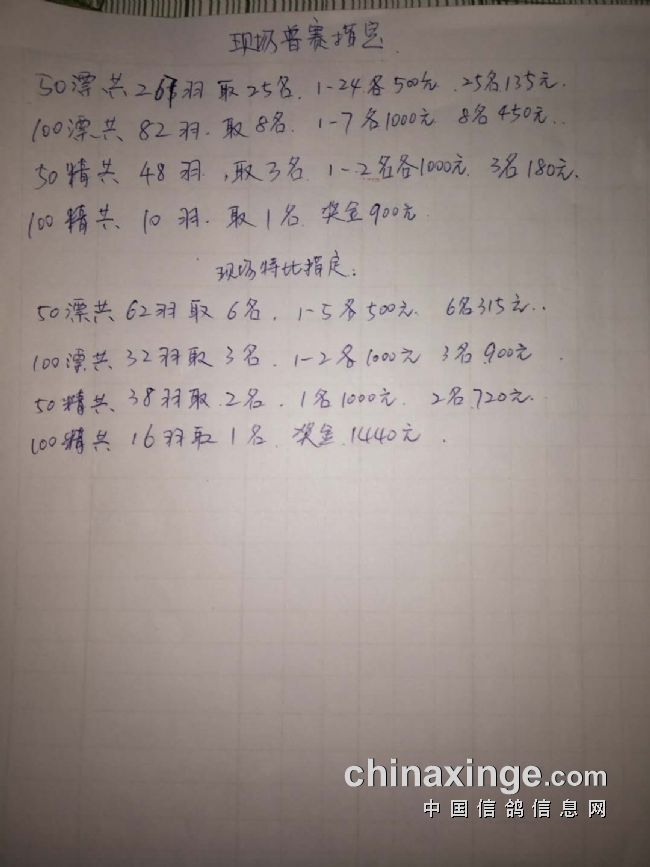 现场普赛指定.
50漂共 261羽 取25名. 1-24各500元. 25名135元.
100漂共 82羽. 取8名. 1-7名1000元 8名450元..
50精共 48羽, 取3名. 1-2名各1000元. 3名180元.
100精共 10羽. 取1名 奖金900元.
现场特比指定:
50漂共 62羽取6名. 1-5各500元. 6名315元..
100漂共 32羽取3名. 1-2各1000元 3名.900元.
50精共 38羽取.2名. 1名1000元. 2名.720元..
100精共 16羽取1名. 奖金.1440元.
chinaxinge.com
中国信鸽信息网